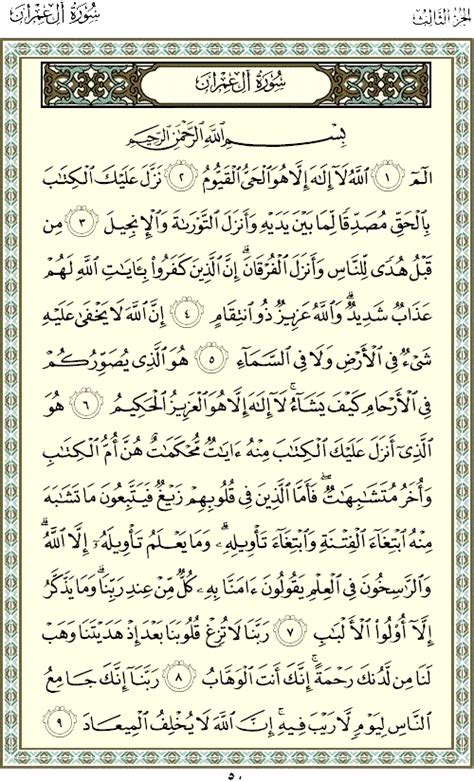 سُورَةُ آلِ عِمۡرَانَ
الجُزءُ الثَّالِث
سُورَةُ آلِ عِمۡرَانَ
بِسۡمِ ٱللَّهِ ٱلرَّحۡمَٰنِ ٱلرَّحِيمِ
الٓمٓ ١ ٱللَّهُ لَآ إِلَٰهَ إِلَّا هُوَ ٱلۡحَيُّ ٱلۡقَيُّومُ ٢ نَزَّلَ عَلَيۡكَ ٱلۡكِتَٰبَ
بِٱلۡحَقِّ مُصَدِّقٗا لِّمَا بَيۡنَ يَدَيۡهِ وَأَنزَلَ ٱلتَّوۡرَىٰةَ وَٱلۡإِنجِيلَ ٣ مِن
قَبۡلُ هُدٗى لِّلنَّاسِ وَأَنزَلَ ٱلۡفُرۡقَانَۗ إِنَّ ٱلَّذِينَ كَفَرُواْ بِـَٔايَٰتِ ٱللَّهِ لَهُمۡ
عَذَابٞ شَدِيدٞۗ وَٱللَّهُ عَزِيزٞ ذُو ٱنتِقَامٍ ٤ إِنَّ ٱللَّهَ لَا يَخۡفَىٰ عَلَيۡهِ
شَيۡءٞ فِي ٱلۡأَرۡضِ وَلَا فِي ٱلسَّمَآءِ ٥ هُوَ ٱلَّذِي يُصَوِّرُكُمۡ
فِي ٱلۡأَرۡحَامِ كَيۡفَ يَشَآءُۚ لَآ إِلَٰهَ إِلَّا هُوَ ٱلۡعَزِيزُ ٱلۡحَكِيمُ ٦ هُوَ
ٱلَّذِيٓ أَنزَلَ عَلَيۡكَ ٱلۡكِتَٰبَ مِنۡهُ ءَايَٰتٞ مُّحۡكَمَٰتٌ هُنَّ أُمُّ ٱلۡكِتَٰبِ
وَأُخَرُ مُتَشَٰبِهَٰتٞۖ فَأَمَّا ٱلَّذِينَ فِي قُلُوبِهِمۡ زَيۡغٞ فَيَتَّبِعُونَ مَا تَشَٰبَهَ
مِنۡهُ ٱبۡتِغَآءَ ٱلۡفِتۡنَةِ وَٱبۡتِغَآءَ تَأۡوِيلِهِۦۗ وَمَا يَعۡلَمُ تَأۡوِيلَهُۥٓ إِلَّا ٱللَّهُۗ
وَٱلرَّٰسِخُونَ فِي ٱلۡعِلۡمِ يَقُولُونَ ءَامَنَّا بِهِۦ كُلّٞ مِّنۡ عِندِ رَبِّنَاۗ وَمَا يَذَّكَّرُ
إِلَّآ أُوْلُواْ ٱلۡأَلۡبَٰبِ ٧ رَبَّنَا لَا تُزِغۡ قُلُوبَنَا بَعۡدَ إِذۡ هَدَيۡتَنَا وَهَبۡ
لَنَا مِن لَّدُنكَ رَحۡمَةًۚ إِنَّكَ أَنتَ ٱلۡوَهَّابُ ٨ رَبَّنَآ إِنَّكَ جَامِعُ
ٱلنَّاسِ لِيَوۡمٖ لَّا رَيۡبَ فِيهِۚ إِنَّ ٱللَّهَ لَا يُخۡلِفُ ٱلۡمِيعَادَ ٩
٥٠